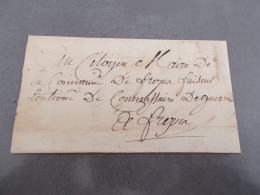 Au Citoyen Maire De
la Commune De frejus faisant
fontion De Commissaire De guerre
A frejus